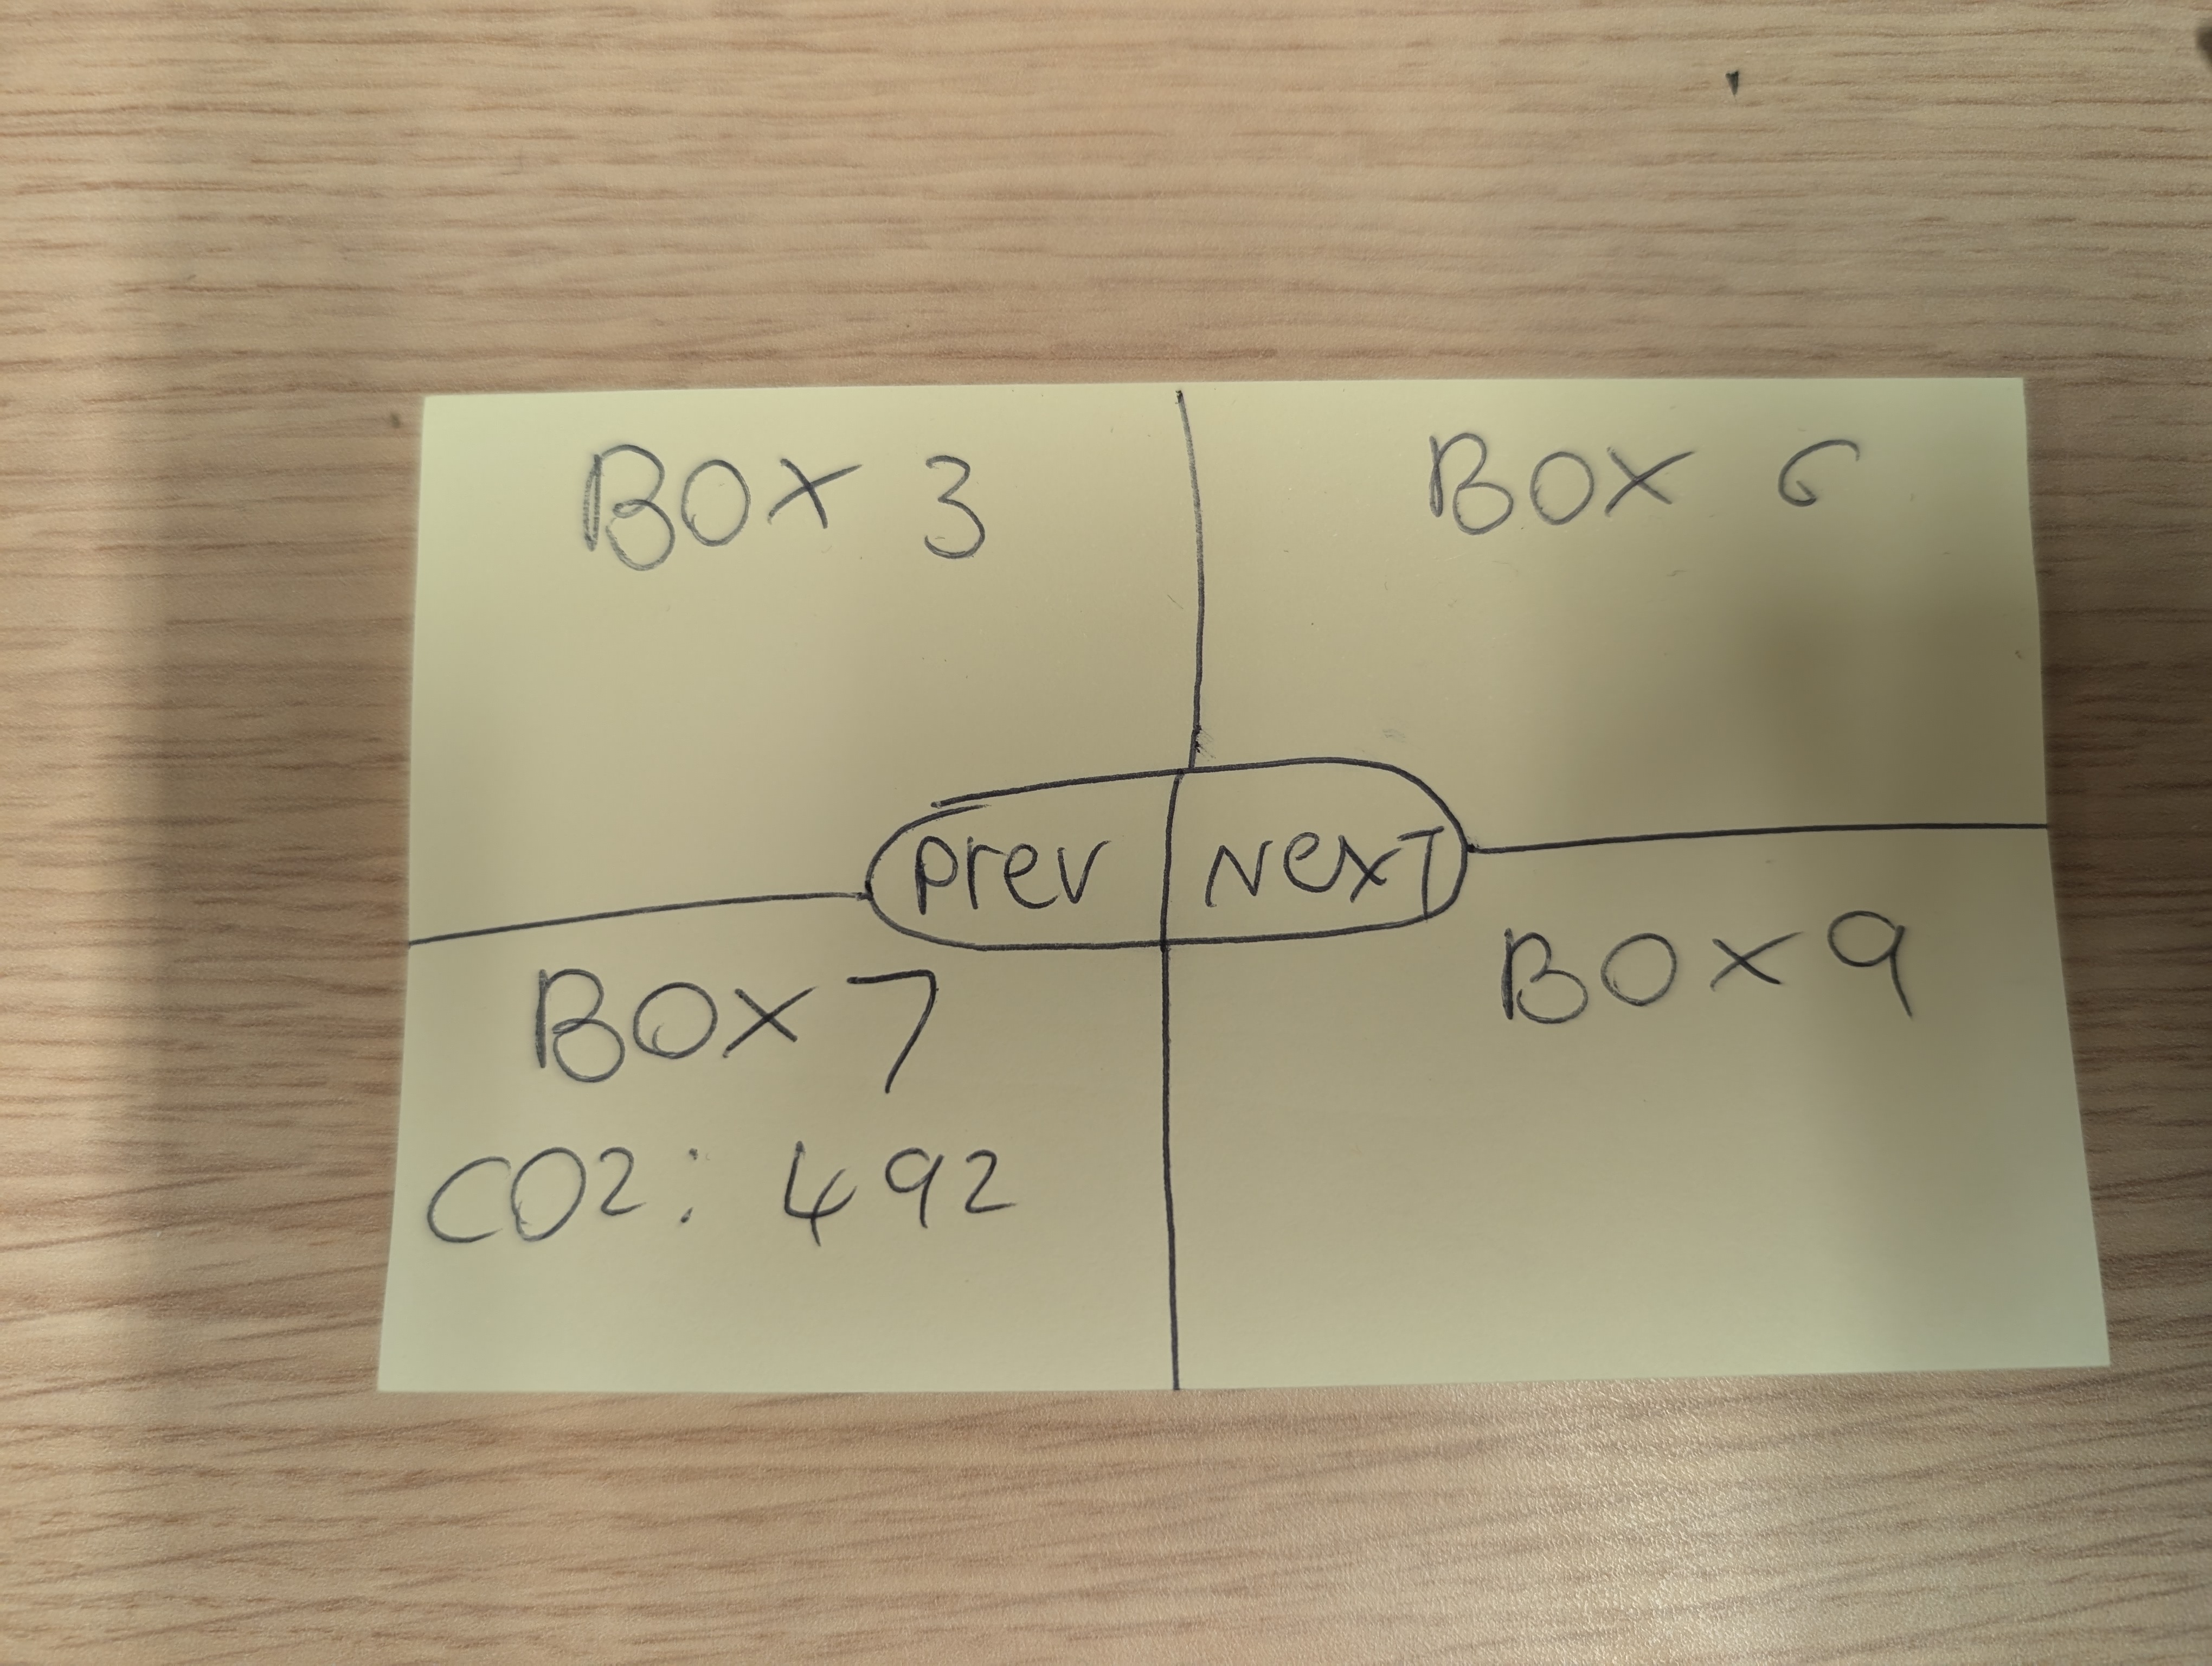 BOX 3
BOX 6
prev
NEXT
BOX 7
CO2: 492
BOX 9